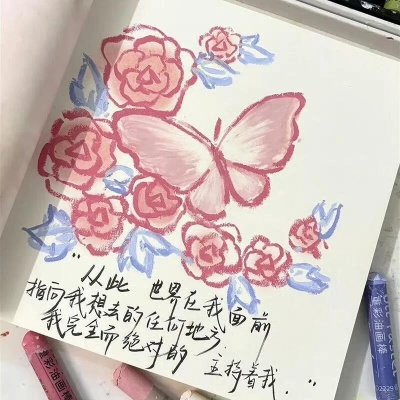 "从此 世界在我面前
指向我想去的任何地方
我完全而绝对的 主持着我."
重彩油画棒
重彩油画棒